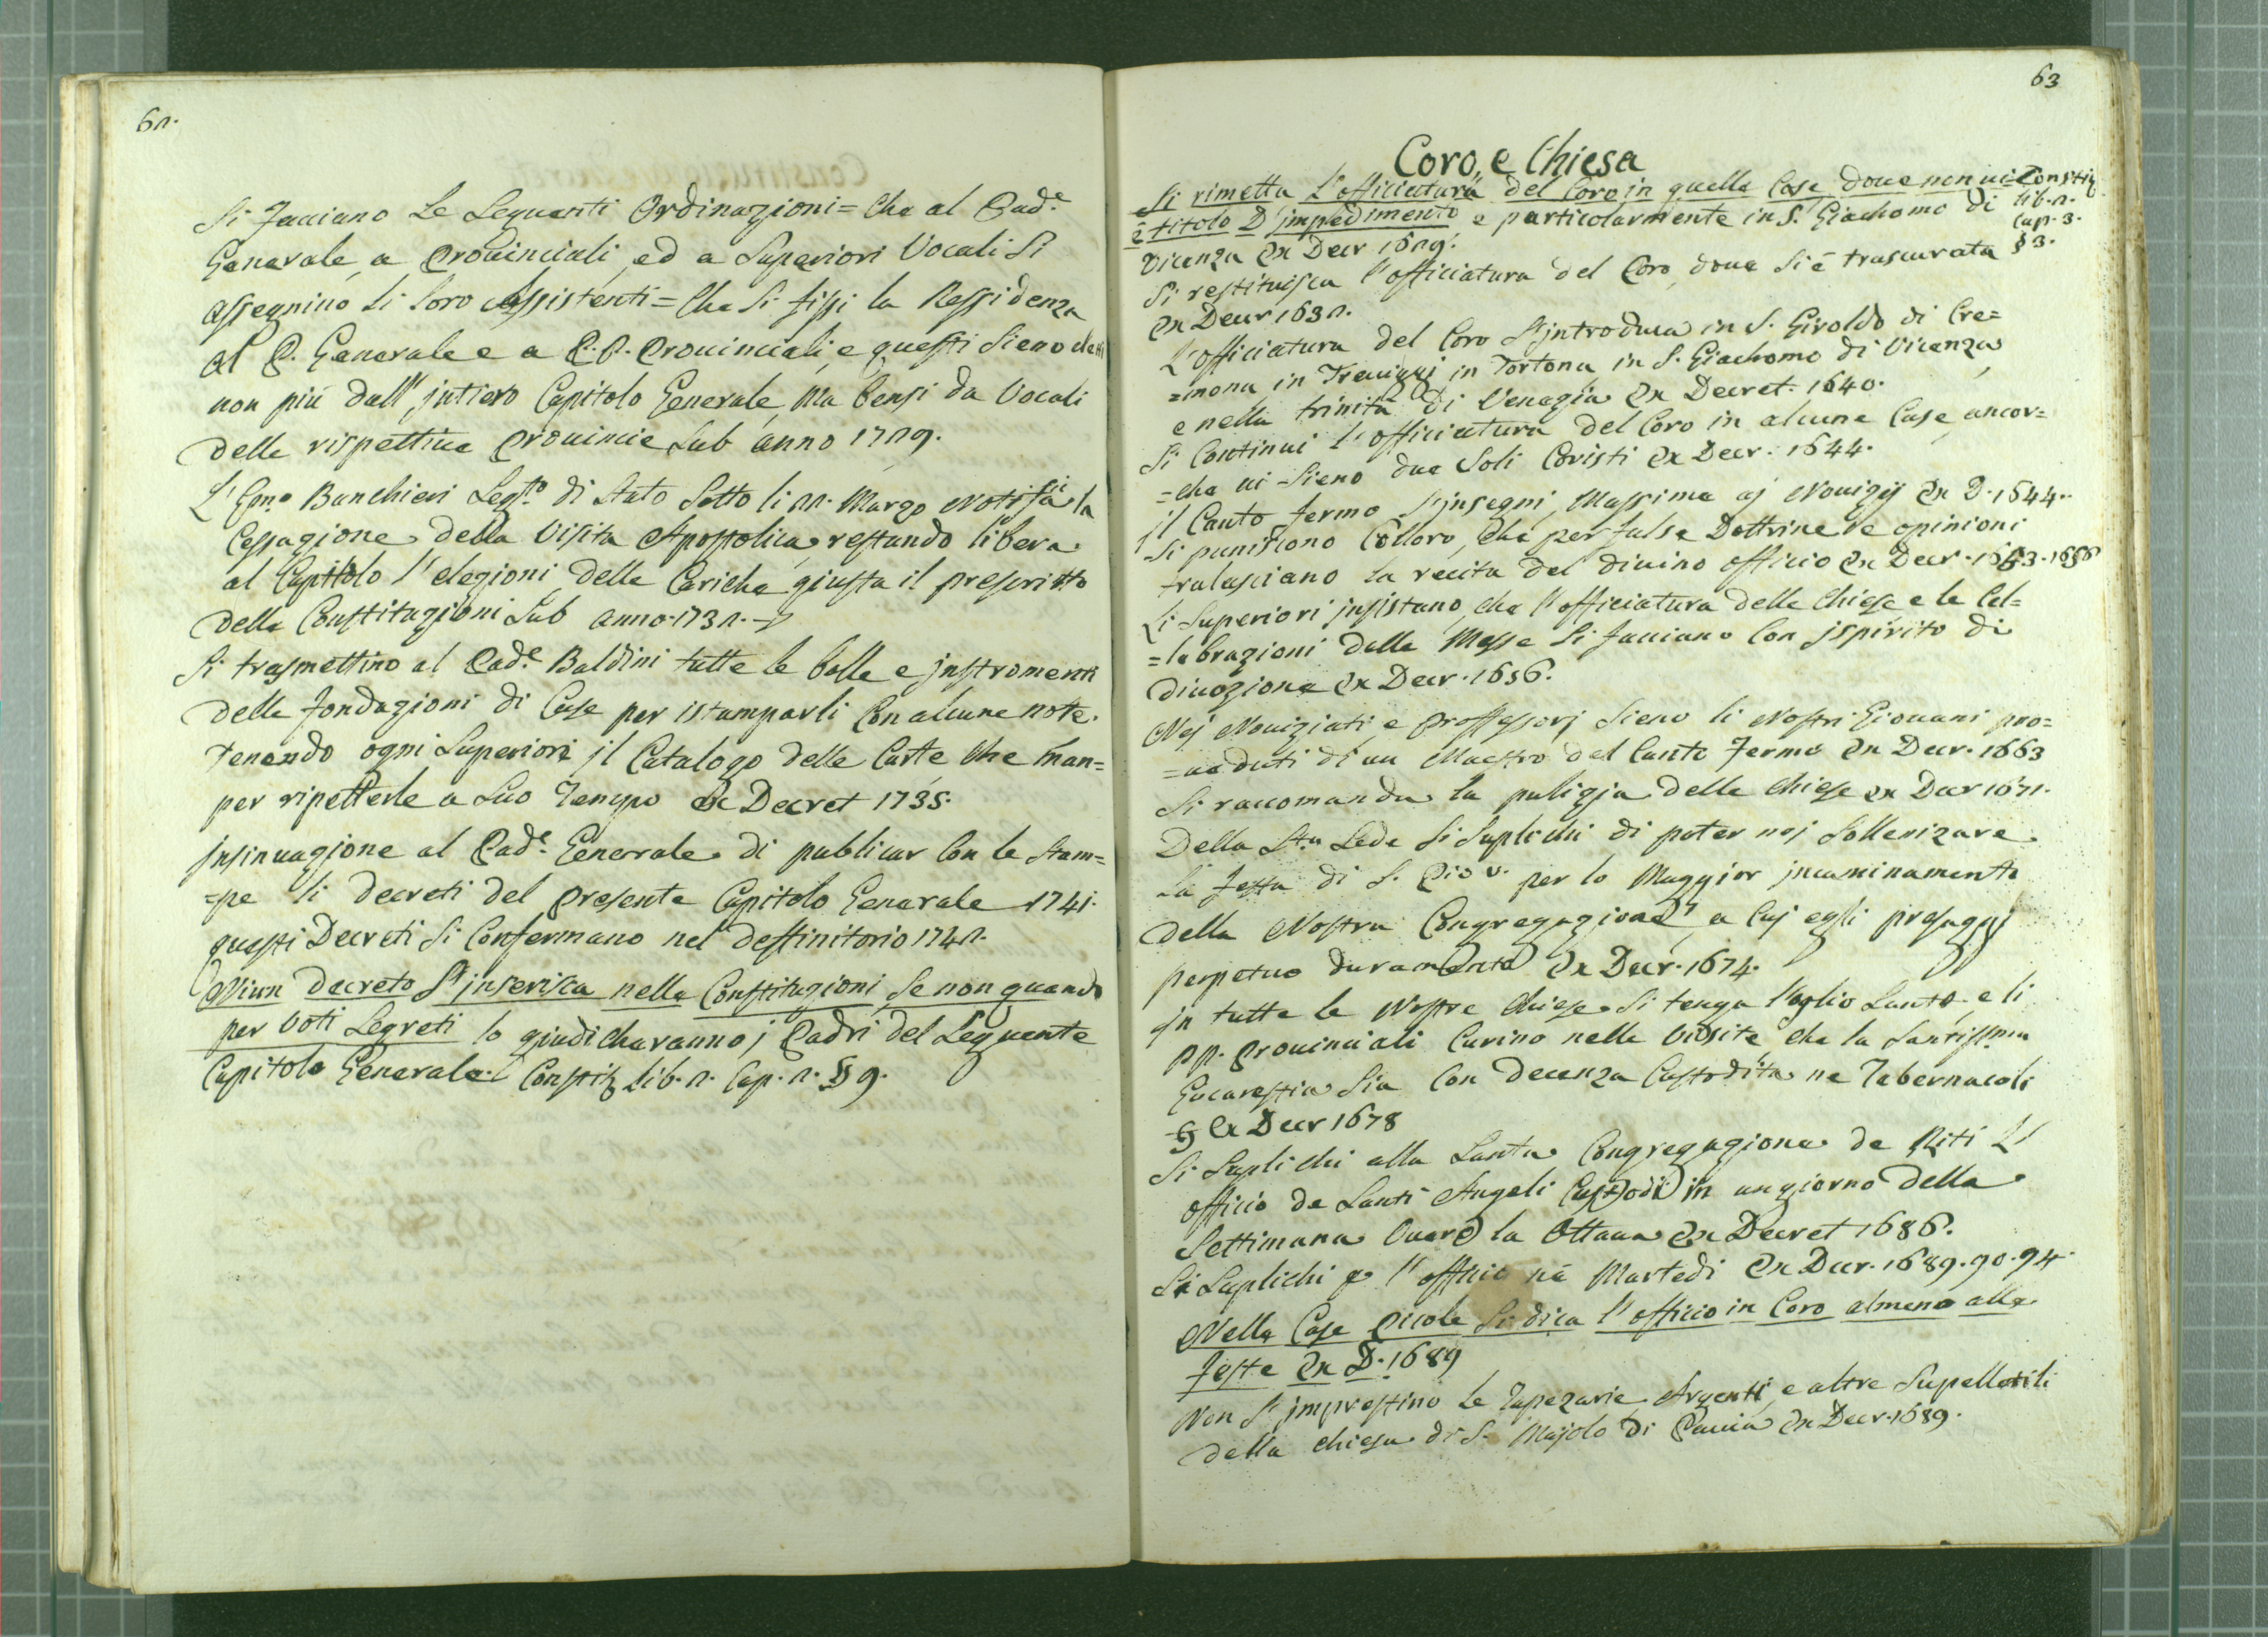 62.
Si facciano le seguenti Ordinazioni = che al Pad.e
Generale, a Provinciali, ed a Superiori Vocali Si
assegnino li loro Assistenti = Che si fissi la Ressidenza
al P. Generale e a P.P. Prouinciali, e questi sieno eletti
non più dall' jntiero Capitolo Generale, Ma bensi da Vocali
delle rispettiue Prouincie Sub anno 1729.
L' Em.o Banchieri Seg.to di Stato sotto li 22. Marzo Notifica la
Cessazione della Visita Apostolica, restando libera
al Capittolo l' elezioni delle Cariche, giusta il prescritto
delle Constituzioni Sub anno 1732.
Si trasmettino al Pad.e Baldini tutte le bolle e jnstromenti
delle fondazioni di Case per istamparli Con alcune note.
Tenendo ogni Superiore jl Catalogo delle Carte che man=
per ripetterle a Suo Tempo Ex Decret 1735.
jnsinuazione al Pad.e Generale di publicar Con le stam=
=pe li decreti del presente Capitolo Generale 1741.
questi Decreti si Confermano nel deffinitorio 1742.
Niun decreto S' jnserisca nelle Constituzioni, se non quando
per Voti Segreti lo giudicharanno j Padri del Seguente
Capitolo Generale. Constit lib. 2. Cap. 2. § 9.
63
Coro, e Chiesa
Si rimetta L'officiatura del Coro in quelle Case doue non ui
è titolo D' jmpedimento e particolarmente in S. Giachomo di
Vicenza Ex Decr 1629.
Constit
lib. 2.
Cap. 3.
§ 3.
Si restituisca l'officiatura del Coro, doue si è trascurata
Ex Decr 1632.
L'officiatura del Coro S'jntroduca in S. Giroldo di Cre=
=mona in Treuiggi in Tortona in S. Giachomo di Vicenza,
e nella trinità di Venezia Ex Decret. 1640.
Si Continui l'officiatura del Coro in alcune Case, ancor=
=che ui sieno due Soli Coristi Ex Decr. 1644.
jl Canto fermo S'jnsegni, Massime aj Nouizij Ex D. 1644.
Si puniscono Colloro, che per false Dottrine e opinioni
tralasciano la recita del diuino officio Ex Decr. 1653. 1656
Li Superiori jnsistano, che l'officiatura delle Chiese e le Cel=
=lebrazioni delle Messe Si facciano Con jspirito di
diuozione Ex Decr. 1656.
Nej Nouiziati, e proffessorj sieno li Nostri Giouani pro=
=ueduti di un Maestro del Canto fermo Ex Decr. 1663
Si raccomanda la pulizia delle Chiese ex Decr 1671.
Della S.ta Sede si suplichi di poter noj Sollenizare
La festa di S. Pio V. per lo Maggior jncaminamento
della Nostra Congregazione, a Cuj egli presaggi
perpetuo duramento Ex Decr. 1674.
jn tutte le Nostre Chiese si tenga l'oglio Santo, e li
PP. Prouinciali Curino nelle Visite che la Santissima
Eucarestia Sia Con decenza Custodita ne Tabernacoli
Ex Decr 1678
Si Suplichi alla Santa Congregazione de Riti L'
officio de Santi Angeli Custodi in un giorno della
Settimana Ouero la Ottaua Ex Decret 1686.
Si Suplichi p l'officio nè Martedi Ex Decr. 1689. 90. 94
Nelle Case picole Si dica l'officio in Coro almeno alle
feste Ex D. 1689
Non S' jmprestino le Tapezarie, Argenti, e altre Supellotili
della chiesa di S. Majolo di Pauia Ex Decr. 1689.